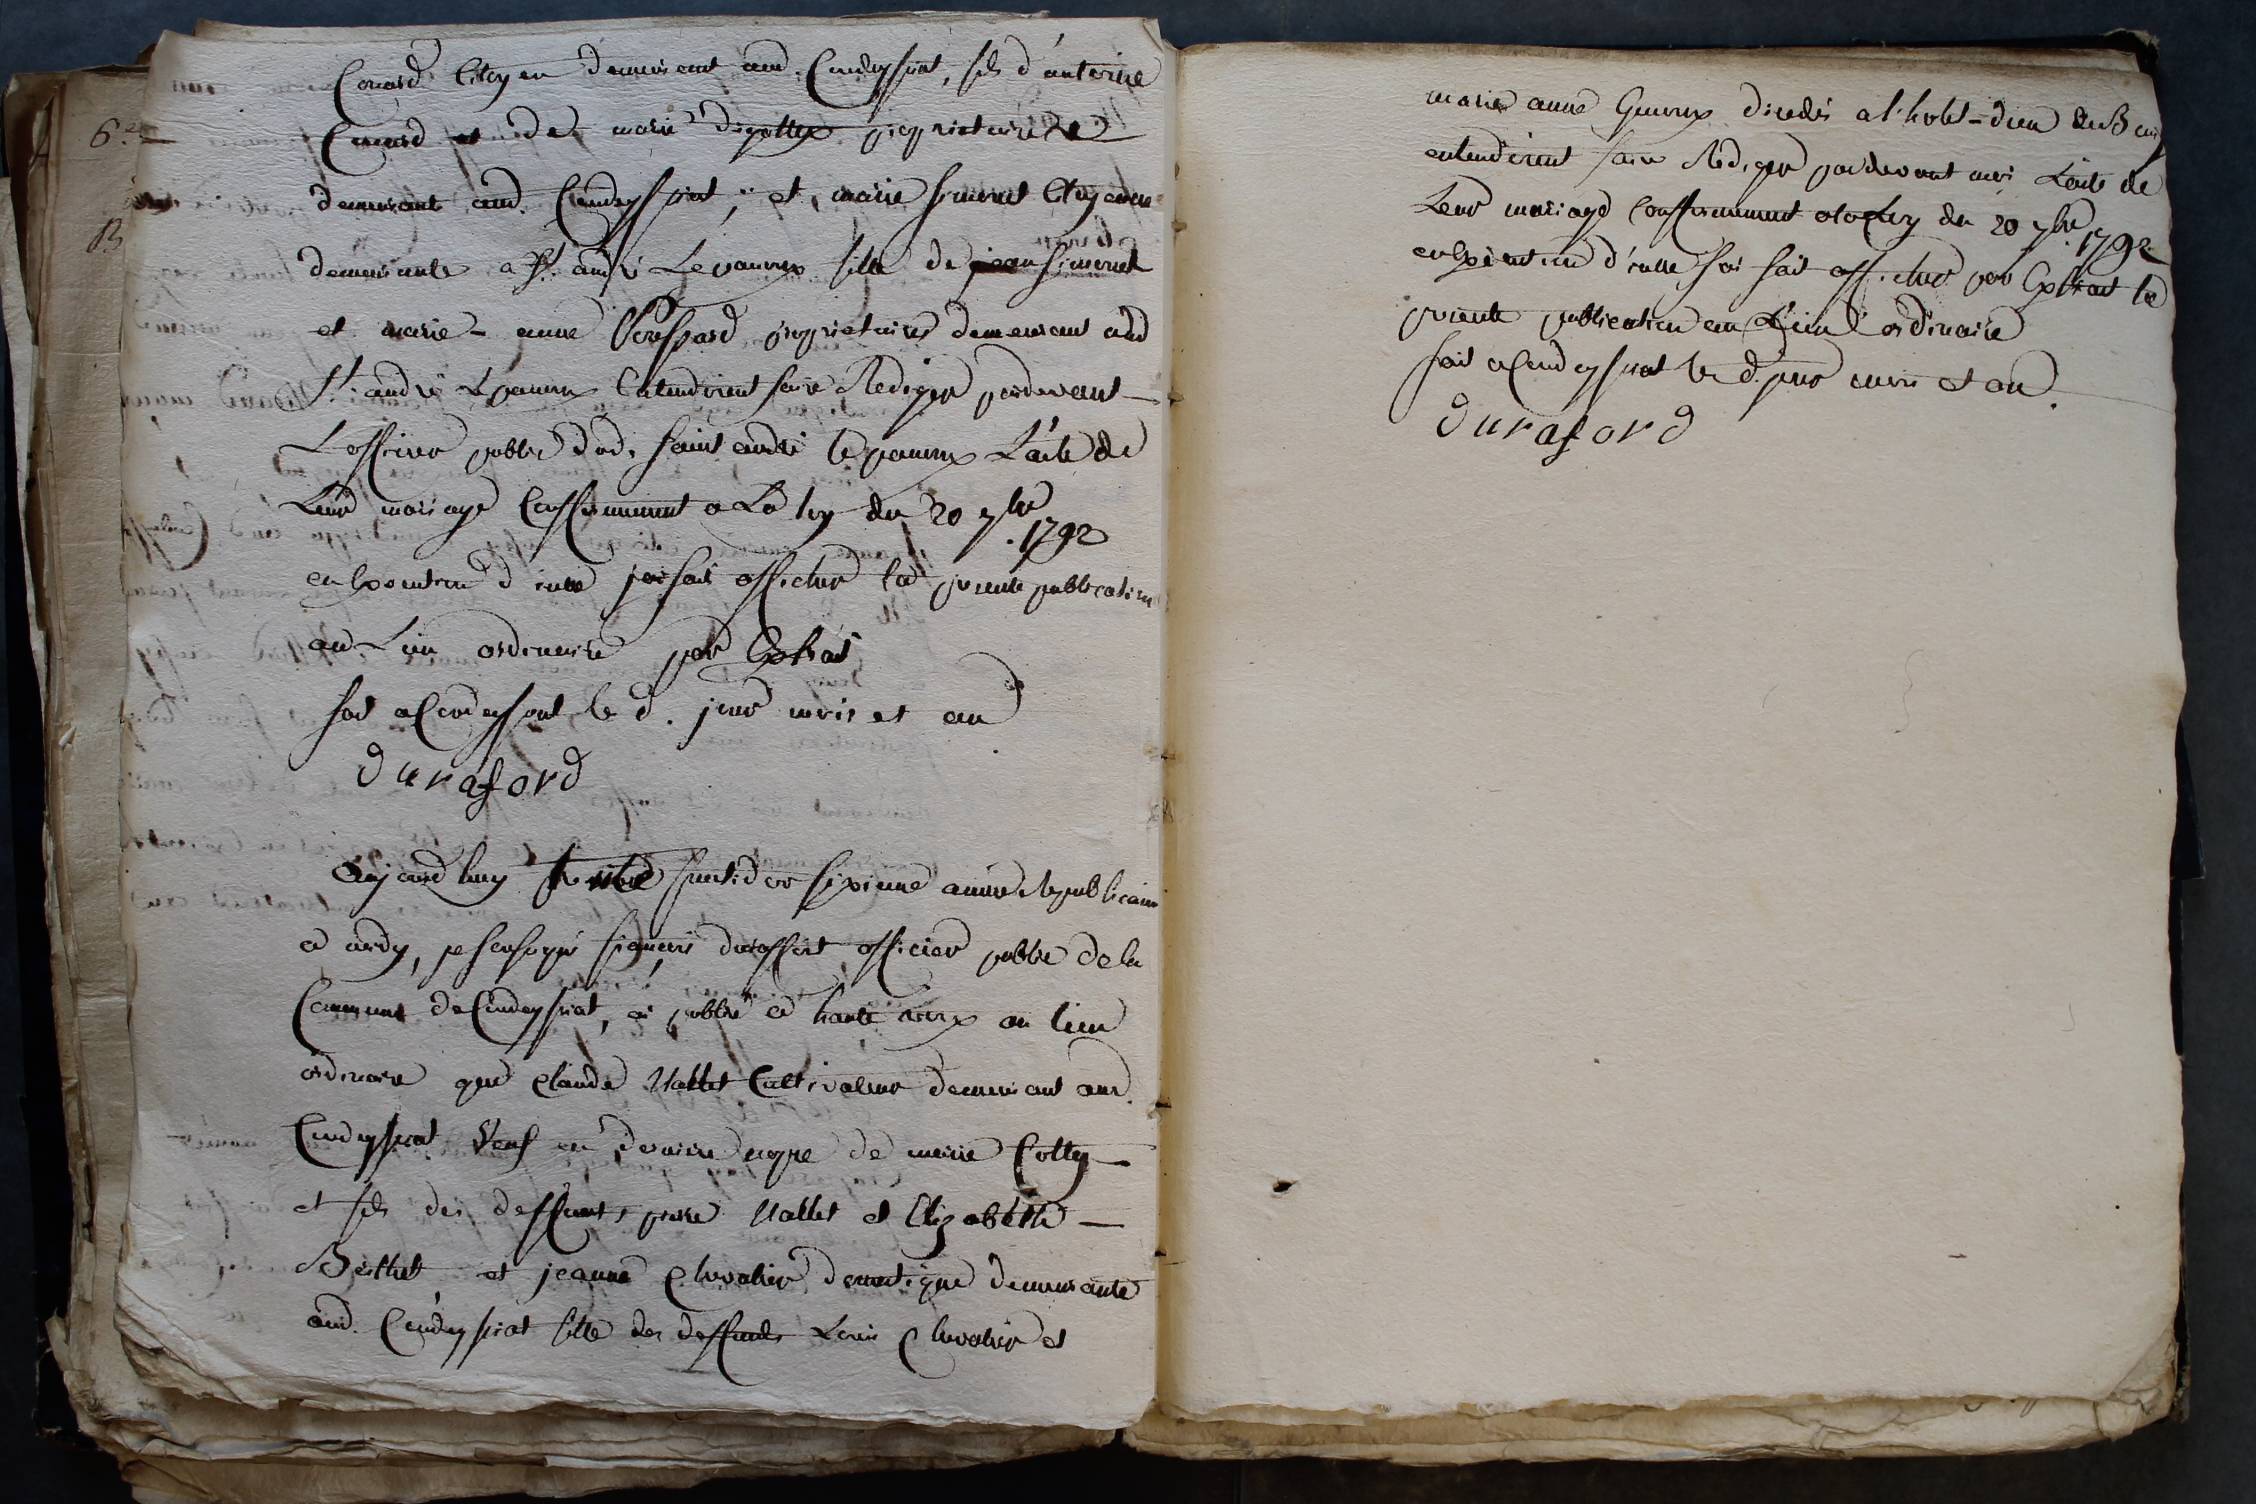 6.e
B
Conard Citoyen demeurant aud. Condeyssiat, fils d'antoine
Conard et de marie digollex proprietaire
demeurants aud. Condeyssiat, et marie simonet Citoyenne
demeurante a St. andré Lepanoux fille de jean simonet
et marie-anne proprietaires demeurant aud
St. andré Lepanoux Entendirent faire Rediger pardevant
L'officier public dud. saint andré le panoux L'acte de
Leur mariage Conformement a La loy du 20 7bre 1792
en Execution d'icelle j'ai fait afficher la presente publication
au Lieu ordinaire par Extrait
fait a Condeyssiat le d. jour mois et an
duraford
Aujourd'huy messidor sixieme année Republicaine
je soussigné duraffort officier public de la
Commune de Condeyssiat, ai publié a haute voix au lieu
ordinaire que Claude Vallet Cultivateur demeurant aud.
Condeyssiat Veuf en derniere nopce de marie Colly
et fils des deffunts piere Vallet et Elizabeth
Berthet et jeanne Chevalier domestique demeurante
aud. Condeyssiat fille des deffunts Louis Chevalier et
marie anne décedés a l'hotel-dieu du Bourg
entendirent faire Rédiger pardevant moi L'acte de
Leur mariage Conformement a la Loy du 20 7bre 1792
en Execution d'icelle j'ai fait afficher par Extrait la
presente publication au Lieu ordinaire
fait a Condeyssiat le d. jour mois et an.
duraford